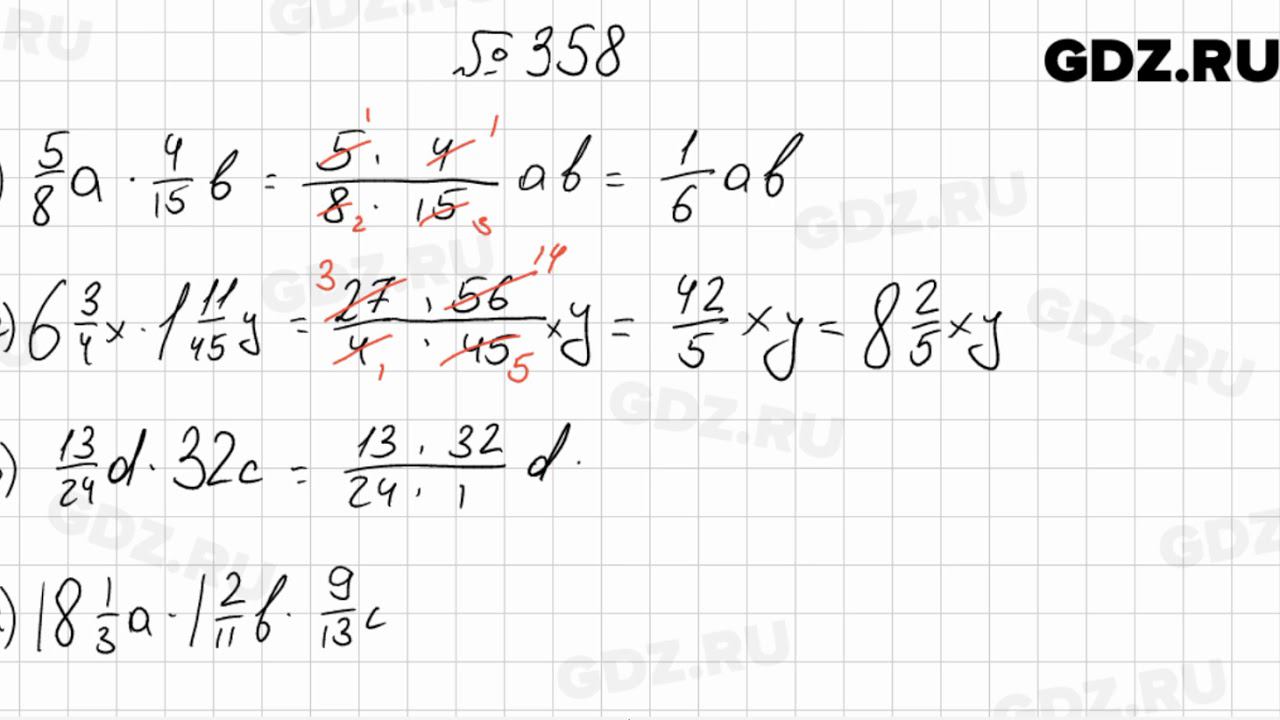 № 358
GDZ.RU
) 5/8 a · 4/15 b = 5 · 4 / 8 · 15 ab = 1/6 ab
1 1
2 3
) 6 3/4 x · 1 11/45 y = 27 · 56 / 4 · 45 xy = 42/5 xy = 8 2/5 xy
3 14
1 5
) 13/24 d · 32c = 13 · 32 / 24 · 1 d ·
) 18 1/3 a · 1 2/11 b · 9/13 c
GDZ.RU
GDZ.RU
GDZ.RU
GDZ.RU
GDZ.RU
GDZ.RU
GDZ.RU
GDZ.RU